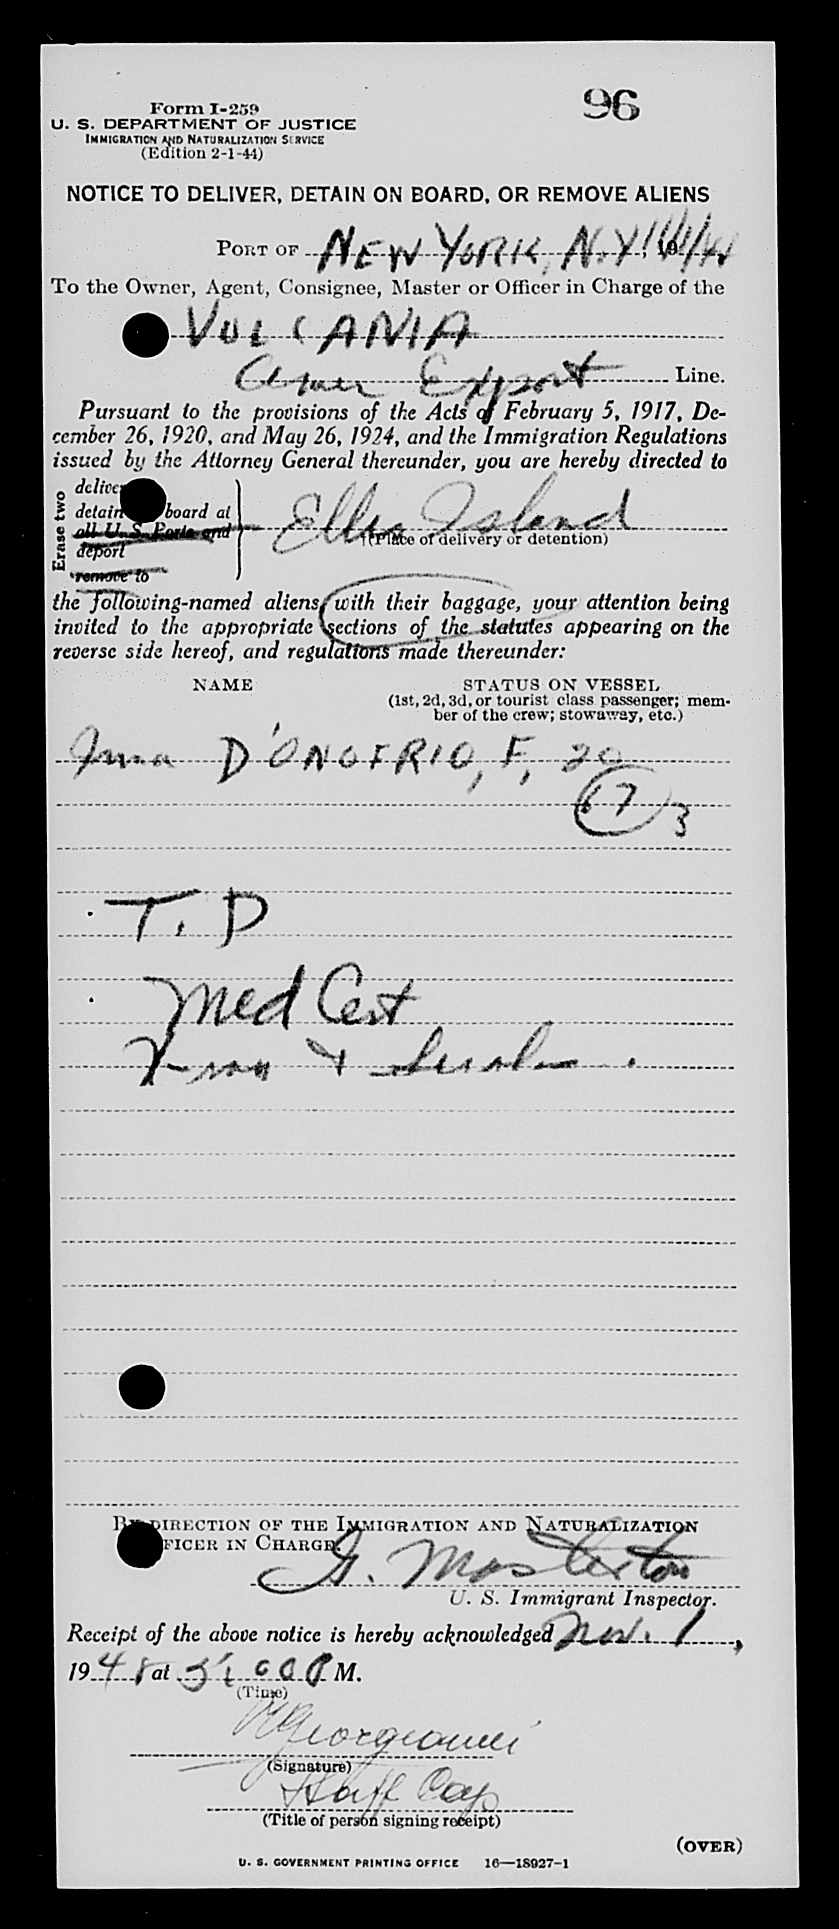 96
Form I-259
U. S. DEPARTMENT OF JUSTICE
IMMIGRATION AND NATURALIZATION SERVICE
(Edition 2-1-44)
NOTICE TO DELIVER, DETAIN ON BOARD, OR REMOVE ALIENS
PORT OF NEW YORK, N.Y. 11/1/48
To the Owner, Agent, Consignee, Master or Officer in Charge of the
VULCANIA
Amer Export Line.
Pursuant to the provisions of the Acts of February 5, 1917, De-
cember 26, 1920, and May 26, 1924, and the Immigration Regulations
issued by the Attorney General thereunder, you are hereby directed to
Erase two
deliver
detain board at
all U. S. Ports and
deport
remove to
Ellis Island
(Place of delivery or detention)
the following-named aliens, with their baggage, your attention being
invited to the appropriate sections of the statutes appearing on the
reverse side hereof, and regulations made thereunder:
NAME STATUS ON VESSEL
(1st, 2d, 3d, or tourist class passenger; mem-
ber of the crew; stowaway, etc.)
Irma D'ONOFRIO, F, 20
67 3
T. D
Med Cert
X-ray &
BY DIRECTION OF THE IMMIGRATION AND NATURALIZATION
OFFICER IN CHARGE.
G. Masterton
U. S. Immigrant Inspector.
Receipt of the above notice is hereby acknowledged Nov. 1,
1948 at 5:00 P M.
(Time)
(Signature)
Staff Cap
(Title of person signing receipt)
(OVER)
U. S. GOVERNMENT PRINTING OFFICE 16—18927-1